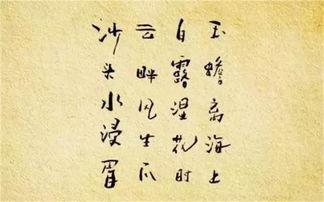 玉蟾离海上
白露湿花时
云畔风生爪
沙头水浸眉